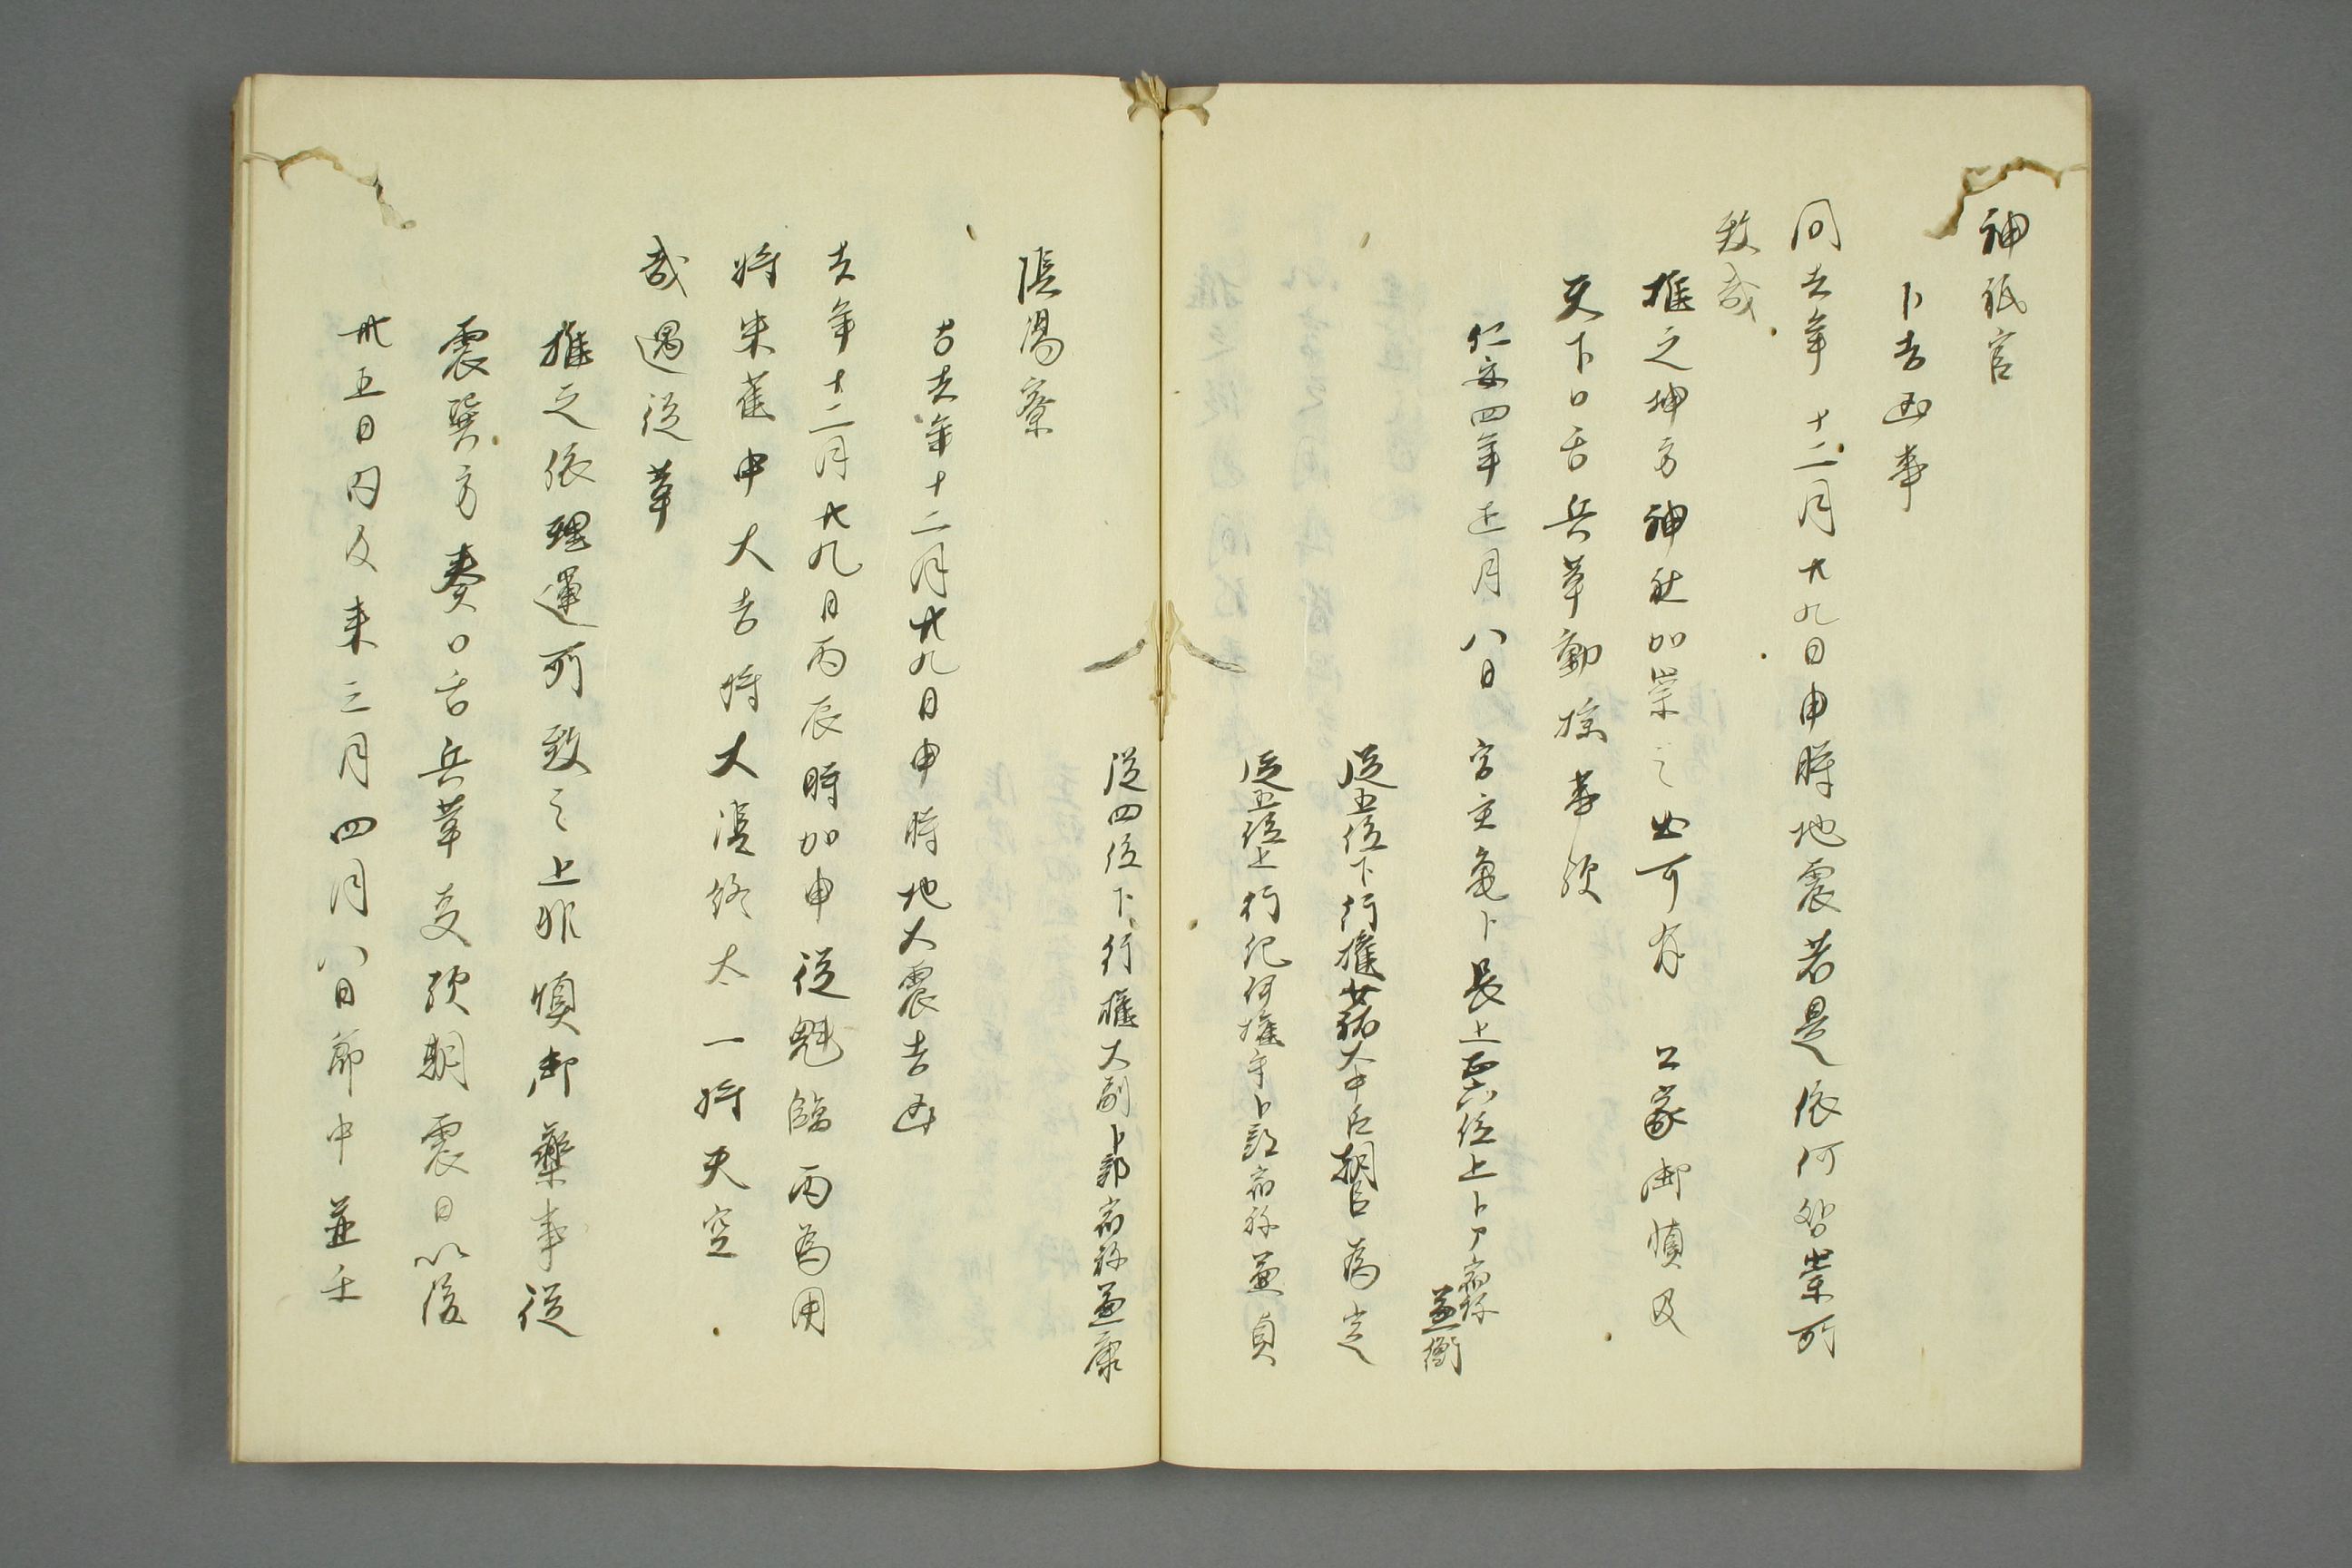 神祇官
卜吉凶事
問去年十二月廿九日申時地震若是依何咎祟所
致哉
推之坤方神社加祟之如可有公家御慎及
天下口舌兵革動揺事欤
仁安四年正月八日宮主亀卜長上正六位上卜部宿祢兼衡
従五位下行権少祐大中臣朝臣為定
従五位上行紀伊権守卜部宿祢兼貞
従四位下行権大副卜部宿祢兼康
陰陽寮
吉去年十二月廿九日申時地大震吉凶
去年十二月廿九日丙辰時加申従魁臨丙為用
将朱雀中大吉将大陰終太一将天空
哉遇従革
推之依理運所致之上非慎御薬事従
震巽方奏口舌兵革支欤期震日以後
卅五日内及来三月四月八日節中並壬